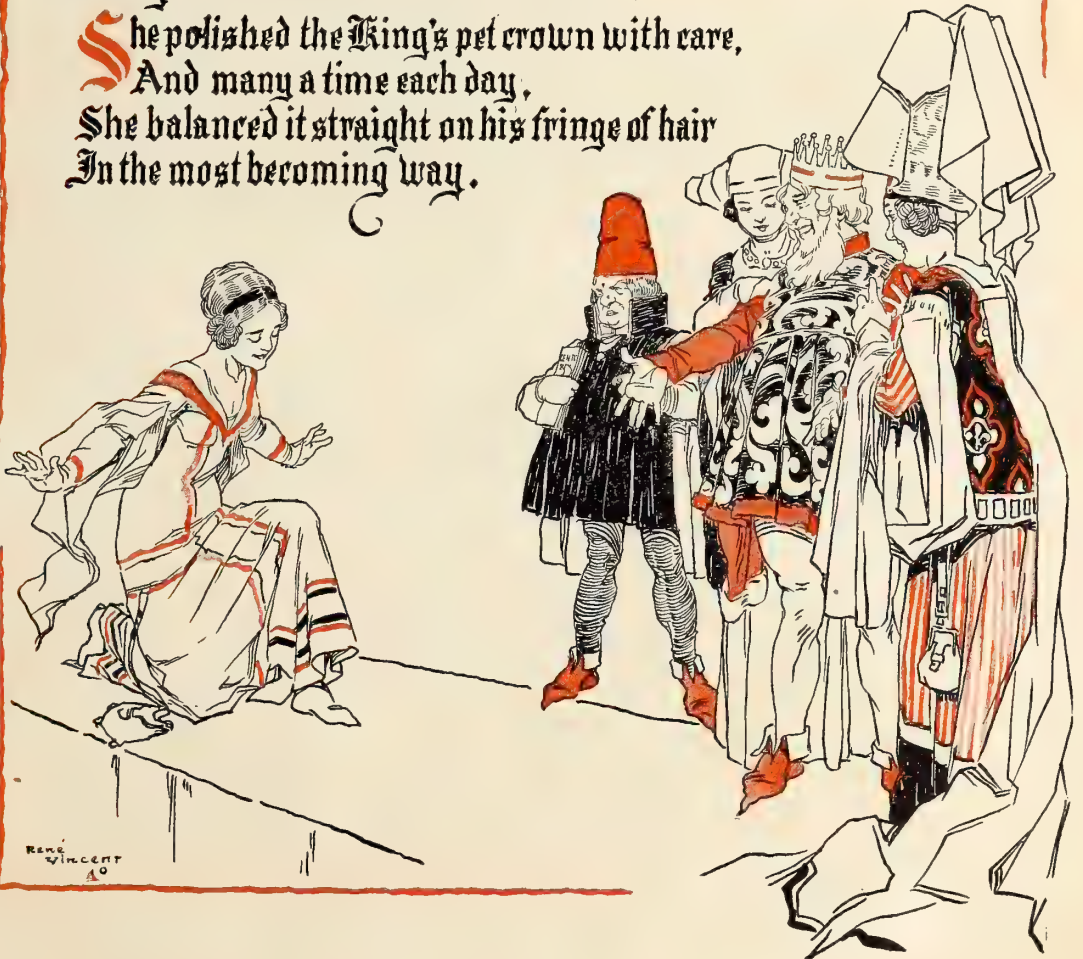 She polished the King's pet crown with care,
And many a time each day,
She balanced it straight on his fringe of hair
In the most becoming way.
René
Vincent